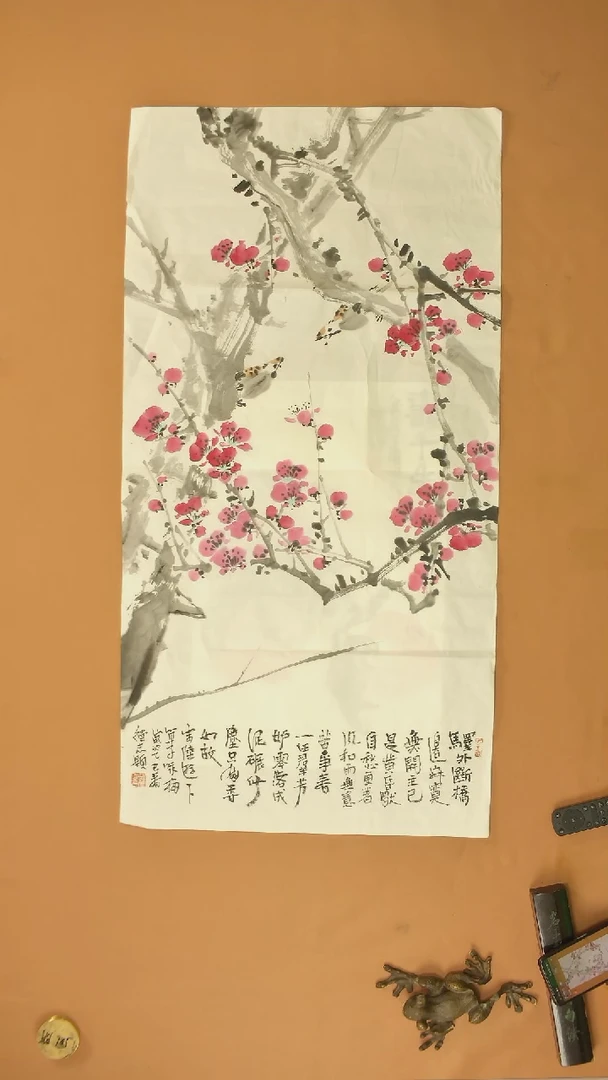 驛外斷橋
邊寂寞
開主已
是黃昏獨
自愁更著
風和雨無意
苦爭春
一任群芳
妒零落成
泥碾作
塵只有香
如故
宋陸遊卜
算子詠梅